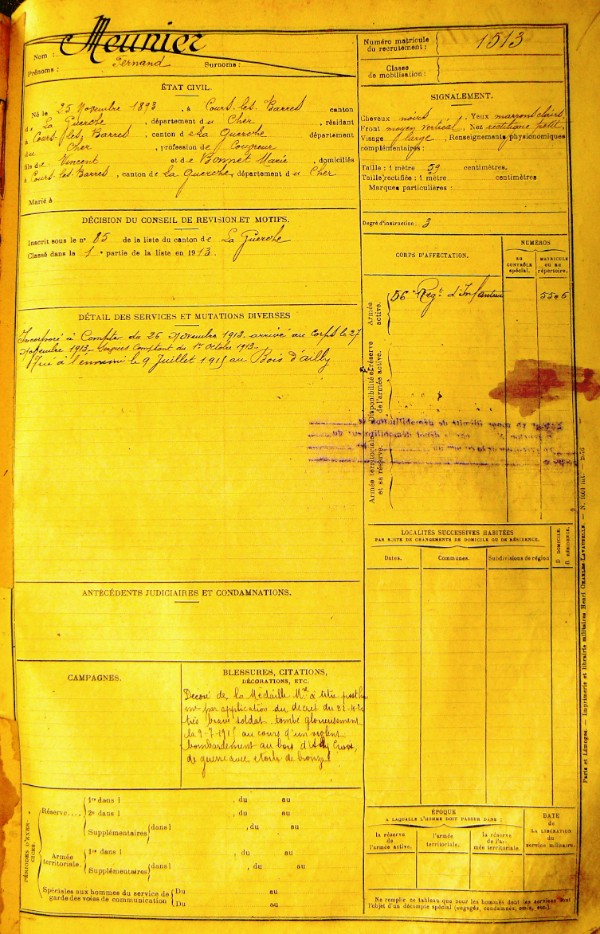 Nom : Meunier
Prénoms : Fernand Surnoms :
Numéro matricule du recrutement : 1513
Classe de mobilisation :
ÉTAT CIVIL.
Né le 25 Novembre 1893, à Cours-les-Barres canton
de La Guerche, département du Cher, résidant
à Cours-les-Barres, canton de La Guerche département
du Cher, profession de Coupreur
fils de Vincent et de Bonnet Marie, domiciliés
à Cours-les-Barres, canton de la Guerche, département du Cher
Marié à
SIGNALEMENT.
Cheveux noirs. Yeux marrons clairs,
Front moyen Nez rectiligne petit
Visage large. Renseignements physionomiques
complémentaires :
Taille : 1 mètre 59 centimètres.
Taille rectifiée : 1 mètre centimètres
Marques particulières :
Degré d'instruction : 3
DÉCISION DU CONSEIL DE REVISION ET MOTIFS.
Inscrit sous le n° 85 de la liste du canton de La Guerche
Classé dans la 1e partie de la liste en 1913.
DÉTAIL DES SERVICES ET MUTATIONS DIVERSES
Incorporé à Compter du 26 Novembre 1913 arrivé au corps le 27
Novembre 1913 Comptant du 1er Octobre 1913
Tué à l'ennemi le 9 Juillet 1915 au Bois d'ailly
CORPS D'AFFECTATION.
NUMÉROS
AU CONTRÔLE spécial.
MATRICULE OU AU répertoire.
Armée active.
56e Regt d'Infanterie
Disponibilité et réserve de l'armée active.
Armée territoriale et sa réserve.
LOCALITÉS SUCCESSIVES HABITÉES
PAR SUITE DE CHANGEMENTS DE DOMICILE OU DE RÉSIDENCE.
Dates.
Communes.
Subdivisions de région
D. DOMICILE.
R. RÉSIDENCE.
ANTÉCÉDENTS JUDICIAIRES ET CONDAMNATIONS.
CAMPAGNES.
BLESSURES, CITATIONS,
DÉCORATIONS, ETC.
Décoré de la Médaille Mre à titre posthu
me par application du décret du
très brave soldat tombé glorieusement
le 9-7-1915 au cours d'un violent
bombardement au bois d'Ailly Croix
de guerre avec étoile de bronze
PÉRIODES D'EXERCICES.
Réserve.... 1re dans l , du au
2e dans l , du au
Supplémentaires dans l , du au
Armée territoriale. 1re dans l , du au
Supplémentaires dans l , du au
Spéciales aux hommes du service de garde des voies de communication Du au
Du au
ÉPOQUE
A LAQUELLE L'HOMME DOIT PASSER DANS :
la réserve de l'armée active.
l'armée territoriale.
la réserve de l'armée territoriale.
DATE
de
LA LIBÉRATION
du
service militaire.
Ne remplir ce tableau que pour les hommes dont les services sont
l'objet d'un décompte spécial (engagés, condamnés, omis, etc.).
Paris et Limoges. — Imprimerie et librairie militaires Henri CHARLES-LAVAUZELLE.